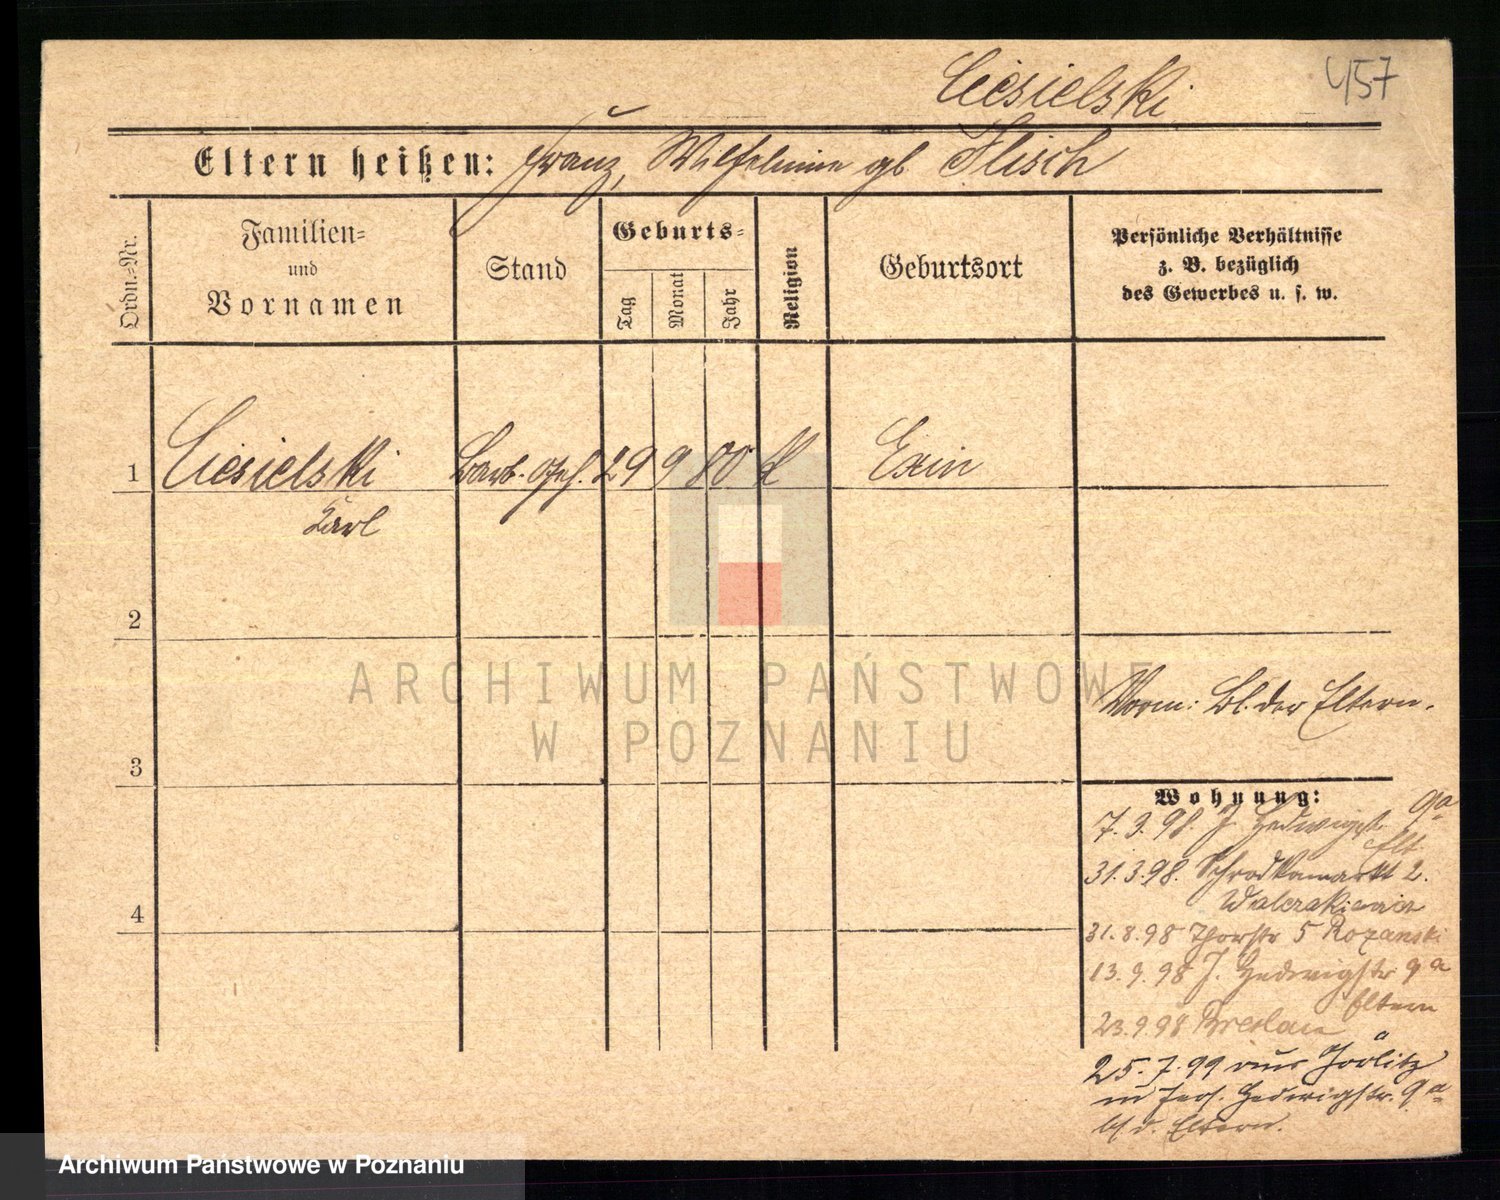 Ciesielski
457
Eltern heißen: Franz, Wilhelmine gb Flisch
Ordn.-Nr.
Familien-
und
Vornamen
Stand
Geburts-
Tag
Monat
Jahr
Religion
Geburtsort
Persönliche Verhältnisse
z. B. bezüglich
des Gewerbes u. s. w.
1 Ciesielski Barb. Geh. 29 9 80 K Exin
Karl
2
3
4
Vorm: Bl. der Eltern.
Wohnung:
7.3.98. J. Hedwigst 9a
Elt
31.3.98. Schrodkamarkt 2.
31.8.98 Thorstr 5 Rozanski
13.9.98 J. Hedwigstr 9a
Eltern
23.9.98 Breslau
25.7.99 aus Görlitz
Hedwigstr. 9a
b/ d. Eltern.
ARCHIWUM PAŃSTWOWE
W POZNANIU
Archiwum Państwowe w Poznaniu